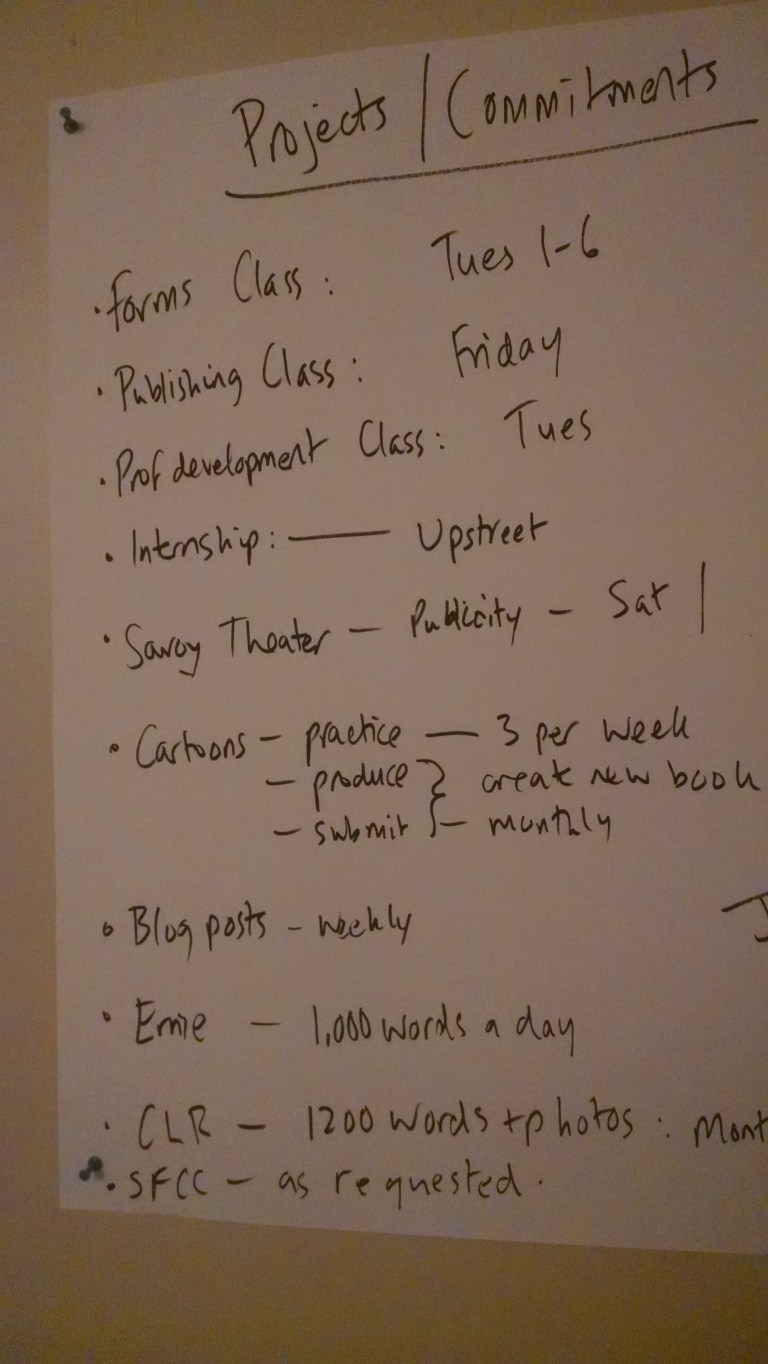 Projects / Commitments
· Forms Class: Tues 1-6
· Publishing Class: Friday
· Prof development Class: Tues
· Internship: — Upstreet
· Savoy Theater — Publicity — Sat |
· Cartoons – practice — 3 per week
– produce } create new book
– submit } – monthly
· Blog posts – weekly
· Ernie — 1,000 words a day
· CLR — 1200 words + photos : Mont
· SFCC — as requested.